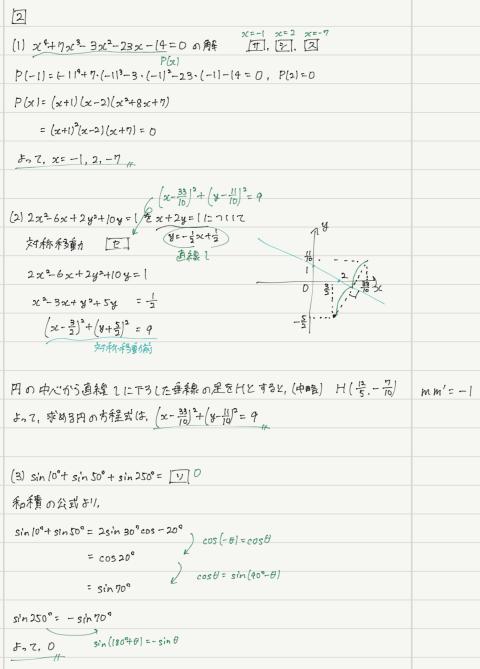 2
(1) x⁴+7x³-3x²-23x-14=0 の解 サ, シ, ス
x=-1 x=2 x=-7
P(x)
P(-1)=(-1)⁴+7・(-1)³-3・(-1)²-23・(-1)-14=0, P(2)=0
P(x)=(x+1)(x-2)(x²+8x+7)
=(x+1)²(x-2)(x+7)=0
よって, x=-1, 2, -7
(x-33/10)²+(y-11/10)²=9
(2) 2x²-6x+2y²+10y=1 を x+2y=1 について
対称移動 セ y=-1/2x+1/2
直線 l
2x²-6x+2y²+10y=1
x²-3x+y²+5y =1/2
(x-3/2)²+(y+5/2)²=9
対称移動前
y
11/10
1
0 3/2 2 33/10 x
-5/2
円の中心から直線 l に下ろした垂線の足をHとすると, (中略) H(12/5, -7/10) mm'=-1
よって, 求める円の方程式は, (x-33/10)²+(y-11/10)²=9
(3) sin10°+sin50°+sin250°= ソ 0
和積の公式より,
sin10°+sin50°=2sin30°cos-20°
cos(-θ)=cosθ
=cos20°
cosθ=sin(90°-θ)
=sin70°
sin250°=-sin70°
sin(180°+θ)=-sinθ
よって, 0